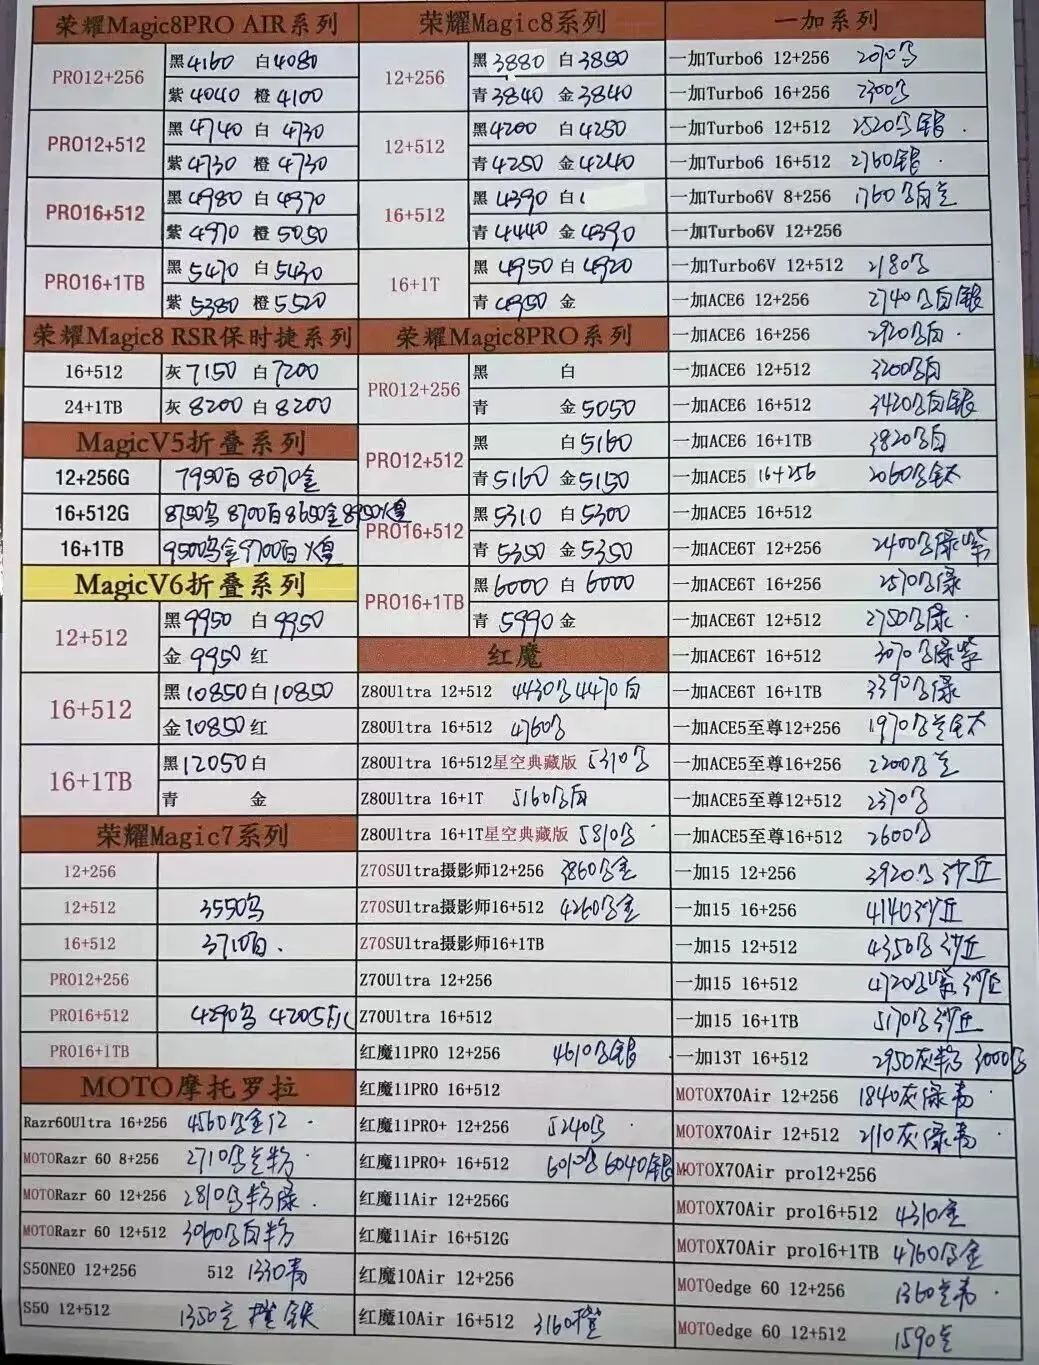 荣耀Magic8PRO AIR系列
PRO12+256 黑4160 白4080
紫4040 橙4100
PRO12+512 黑4740 白4730
紫4730 橙4730
PRO16+512 黑4980 白4970
紫4970 橙5050
PRO16+1TB 黑5470 白5430
紫5380 橙5520
荣耀Magic8 RSR保时捷系列
16+512 灰7150 白7200
24+1TB 灰8200 白8200
MagicV5折叠系列
12+256G 7950白 8070金
16+512G 8750 8700白8650金8950煌
16+1TB 9500 金9700白 煌
MagicV6折叠系列
12+512 黑9950 白9950
金9950 红
16+512 黑10850 白10850
金10850 红
16+1TB 黑12050 白
青 金
荣耀Magic7系列
12+256
12+512 3550
16+512 3710白.
PRO12+256
PRO16+512 4290 4205
PRO16+1TB
MOTO摩托罗拉
Razr60Ultra 16+256 4560 金
MOTORazr 60 8+256 2710 粉
MOTORazr 60 12+256 2810 粉绿.
MOTORazr 60 12+512 3060 白粉
S50NEO 12+256 512 1330青
S50 12+512 1350 橙
荣耀Magic8系列
12+256 黑3880 白3850
青3840 金3840
12+512 黑4200 白4250
青4250 金4240
16+512 黑4390 白
青4440 金4390
16+1T 黑4950 白4920
青4950 金
荣耀Magic8PRO系列
PRO12+256 黑 白
青 金5050
PRO12+512 黑 白5160
青5160 金5150
PRO16+512 黑5310 白5300
青5350 金5350
PRO16+1TB 黑6000 白6000
青5990 金
红魔
Z80Ultra 12+512 4430 4470白
Z80Ultra 16+512 4760
Z80Ultra 16+512星空典藏版 5310
Z80Ultra 16+1T 5160 白
Z80Ultra 16+1T星空典藏版 5810
Z70SUltra摄影师12+256 3860 金
Z70SUltra摄影师16+512 4260 金
Z70SUltra摄影师16+1TB
Z70Ultra 12+256
Z70Ultra 16+512
红魔11PRO 12+256 4610 银
红魔11PRO 16+512
红魔11PRO+ 12+256 5240
红魔11PRO+ 16+512 6010 6040银
红魔11Air 12+256G
红魔11Air 16+512G
红魔10Air 12+256
红魔10Air 16+512 3160橙
一加系列
一加Turbo6 12+256 2070
一加Turbo6 16+256 2300
一加Turbo6 12+512 2520 银.
一加Turbo6 16+512 2760银.
一加Turbo6V 8+256 1760 白
一加Turbo6V 12+256
一加Turbo6V 12+512 2180
一加ACE6 12+256 2740 白银
一加ACE6 16+256 2920 白.
一加ACE6 12+512 3200 白
一加ACE6 16+512 3420 白银
一加ACE6 16+1TB 3820 白
一加ACE5 16+256 2060 钛
一加ACE5 16+512
一加ACE6T 12+256 2400 绿紫
一加ACE6T 16+256 2570 绿
一加ACE6T 12+512 2750 绿.
一加ACE6T 16+512 3070 绿紫
一加ACE6T 16+1TB 3390 绿
一加ACE5至尊12+256 1970 钛
一加ACE5至尊16+256 2200
一加ACE5至尊12+512 2370
一加ACE5至尊16+512 2600
一加15 12+256 3920 沙丘
一加15 16+256 4140沙丘
一加15 12+512 4350 沙丘
一加15 16+512 4720 紫 沙丘
一加15 16+1TB 5170 沙丘
一加13T 16+512 2950灰粉 3000
MOTOX70Air 12+256 1840灰绿青
MOTOX70Air 12+512 2110灰绿青
MOTOX70Air pro12+256
MOTOX70Air pro16+512 4310金
MOTOX70Air pro16+1TB 4760 金
MOTOedge 60 12+256 1360 青
MOTOedge 60 12+512 1590